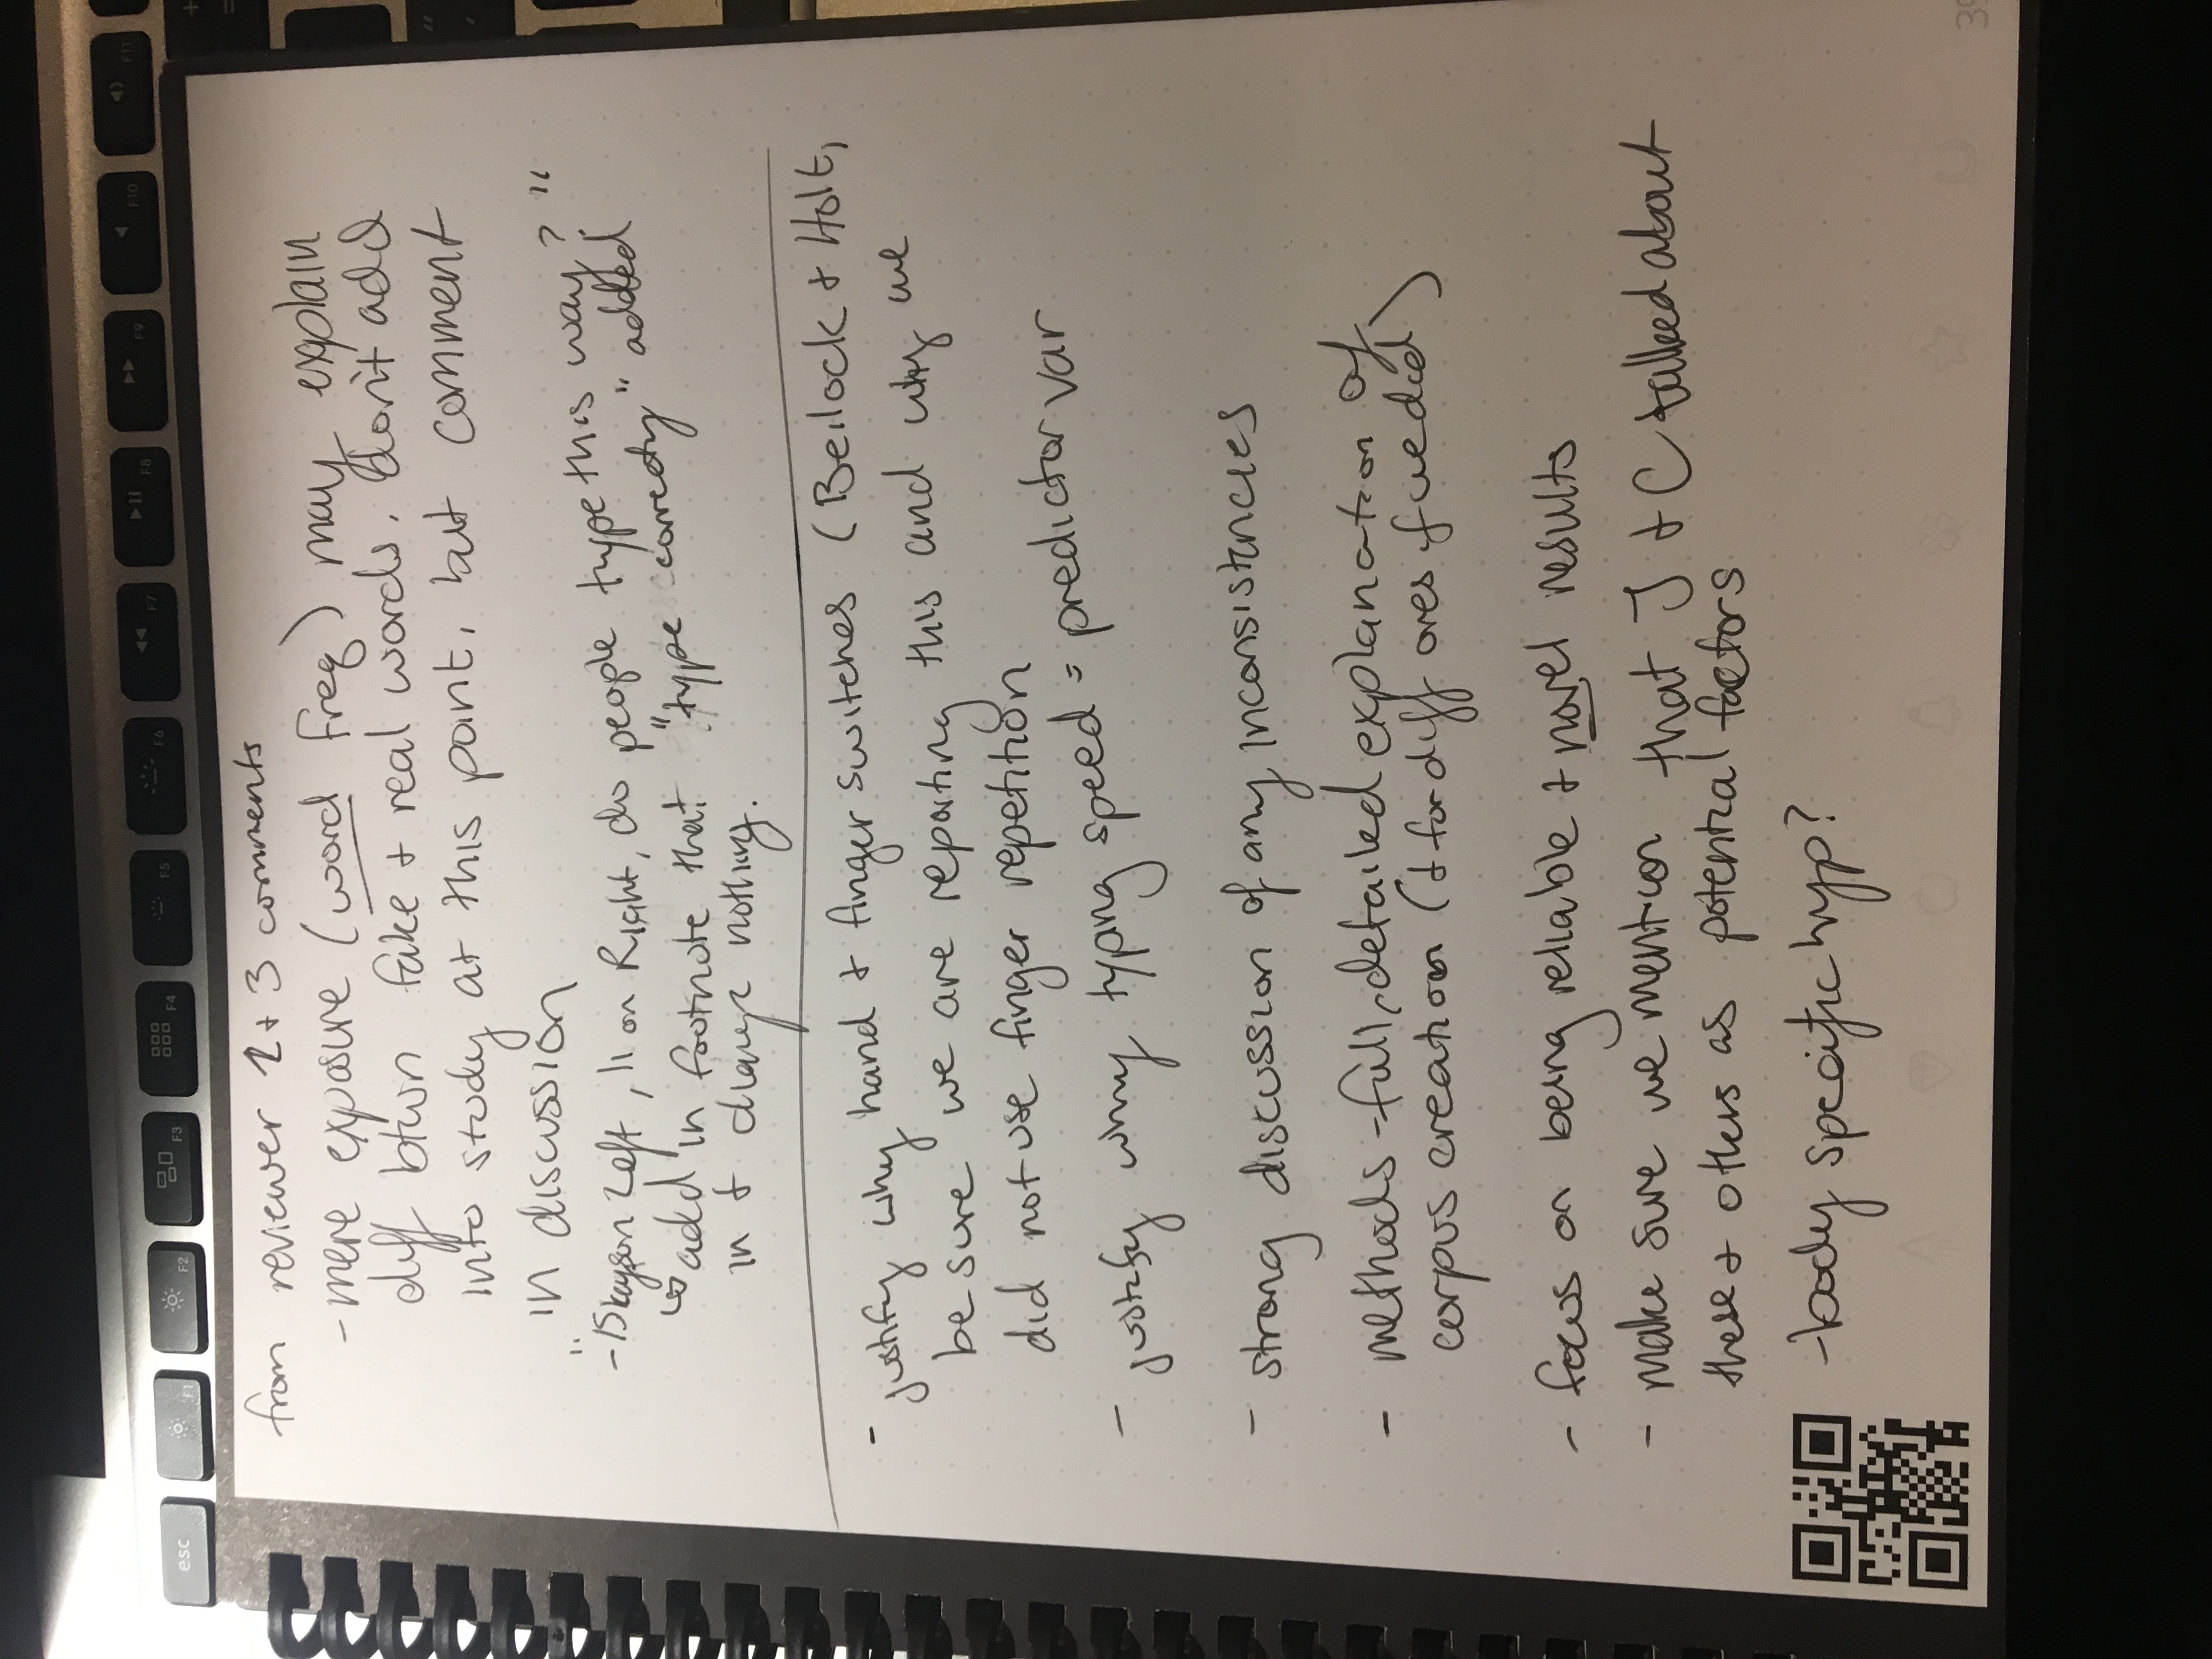 esc F1 F2 F3 F4 F5 F6 F7 F8 F9 F10 F11
from reviewer 1 + 3 comments
- mere exposure (word freq) may explain
diff btwn fake + real words. don't add
into study at this point, but comment
in discussion
- "15 keys on Left, 11 on Right, do people type this way?"
↳ add in footnote that "type correctly" added
in + change nothing.
- justify why hand + finger switches (Beilock + Holt,
be sure we are reporting this and why we
did not use finger repetition
- justify why typing speed = predictor var
- strong discussion of any inconsistencies
- methods - full, detailed explanation of
corpus creation (+ for diff ones if we did)
- focus on being reliable + novel results
- make sure we mention that J + C talked about
these + others as potential factors
- body specific hyp?